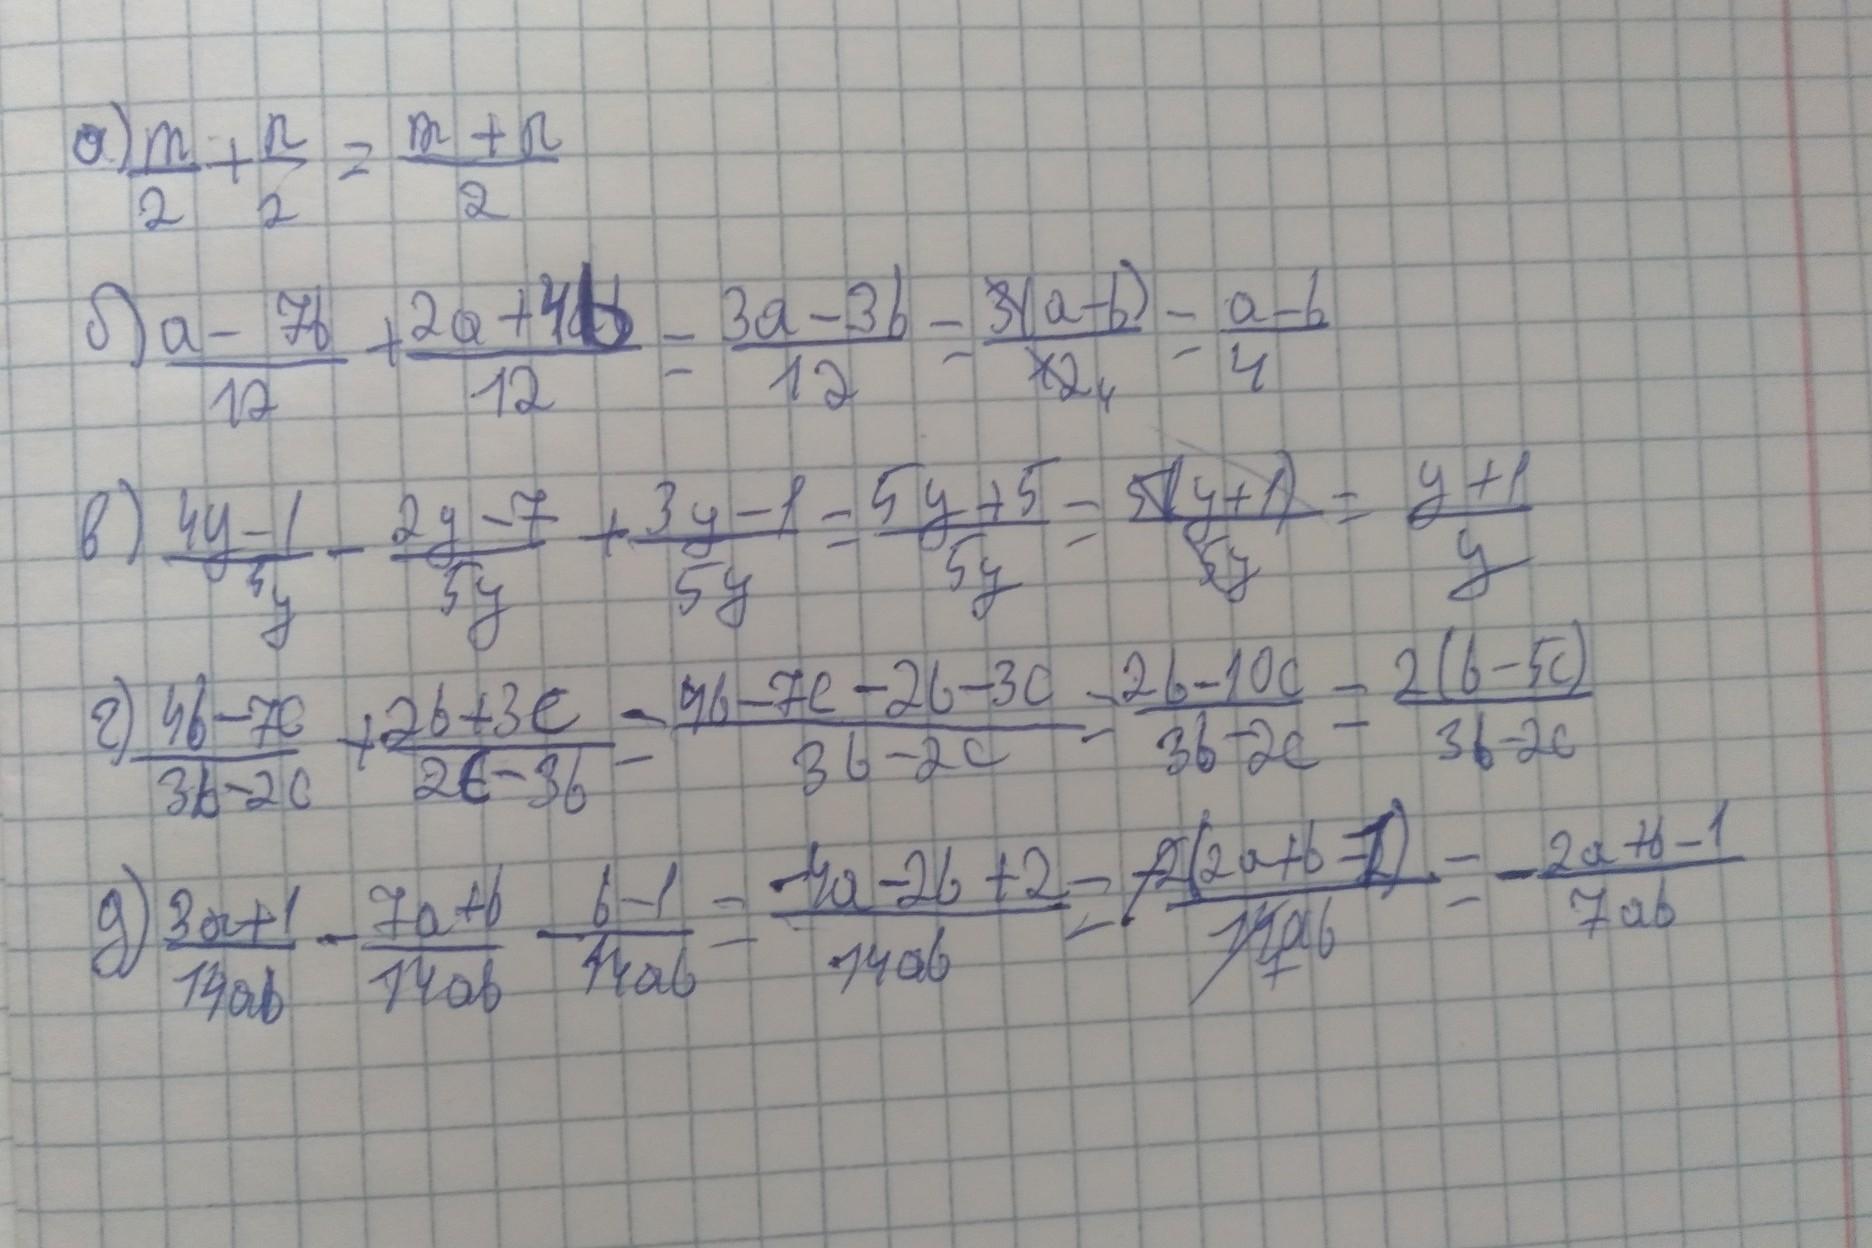 а) m/2 + n/2 = (m + n)/2
б) (a - 7b)/12 + (2a + 4b)/12 = (3a - 3b)/12 = 3(a - b)/12 4 = (a - b)/4
в) (4y - 1)/5y - (2y - 7)/5y + (3y - 1)/5y = (5y + 5)/5y = 5(y + 1)/5y = (y + 1)/y
г) (4b - 7c)/(3b - 2c) + (2b + 3c)/(2c - 3b) = (4b - 7c - 2b - 3c)/(3b - 2c) = (2b - 10c)/(3b - 2c) = 2(b - 5c)/(3b - 2c)
д) (3a + 1)/14ab - (7a + b)/14ab - (b - 1)/14ab = (-4a - 2b + 2)/14ab = -2(2a + b - 1)/14ab 7 = - (2a + b - 1)/7ab